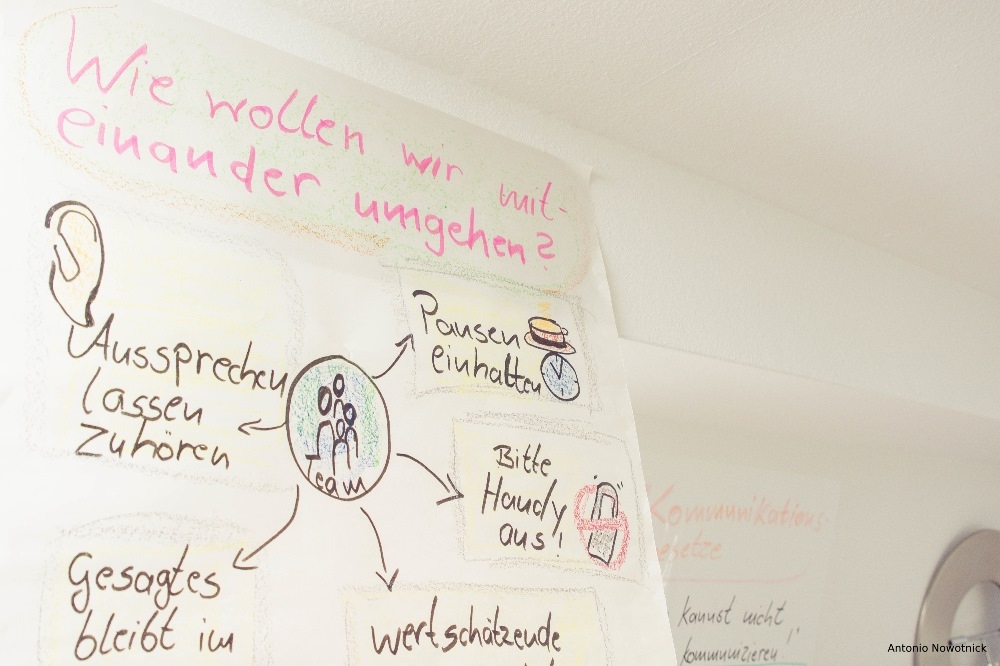 Wie wollen wir mit-
einander umgehen?
Aussprechen
lassen
zuhören
Pausen
einhalten
Team
Bitte
Handy
aus!
Gesagtes
bleibt im
wertschätzende
Kommunikations-
kannst nicht
kommunizieren!
Antonio Nowotnick